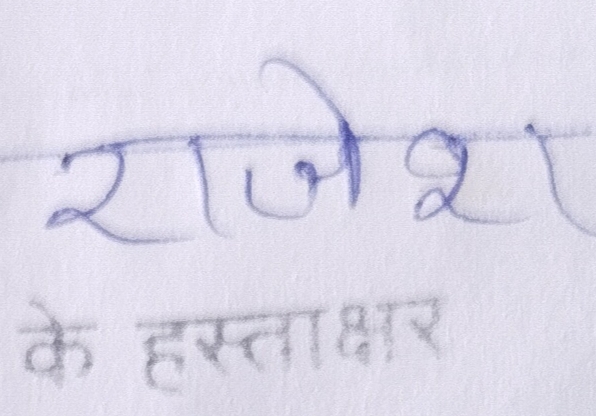 राजेश
के हस्ताक्षर